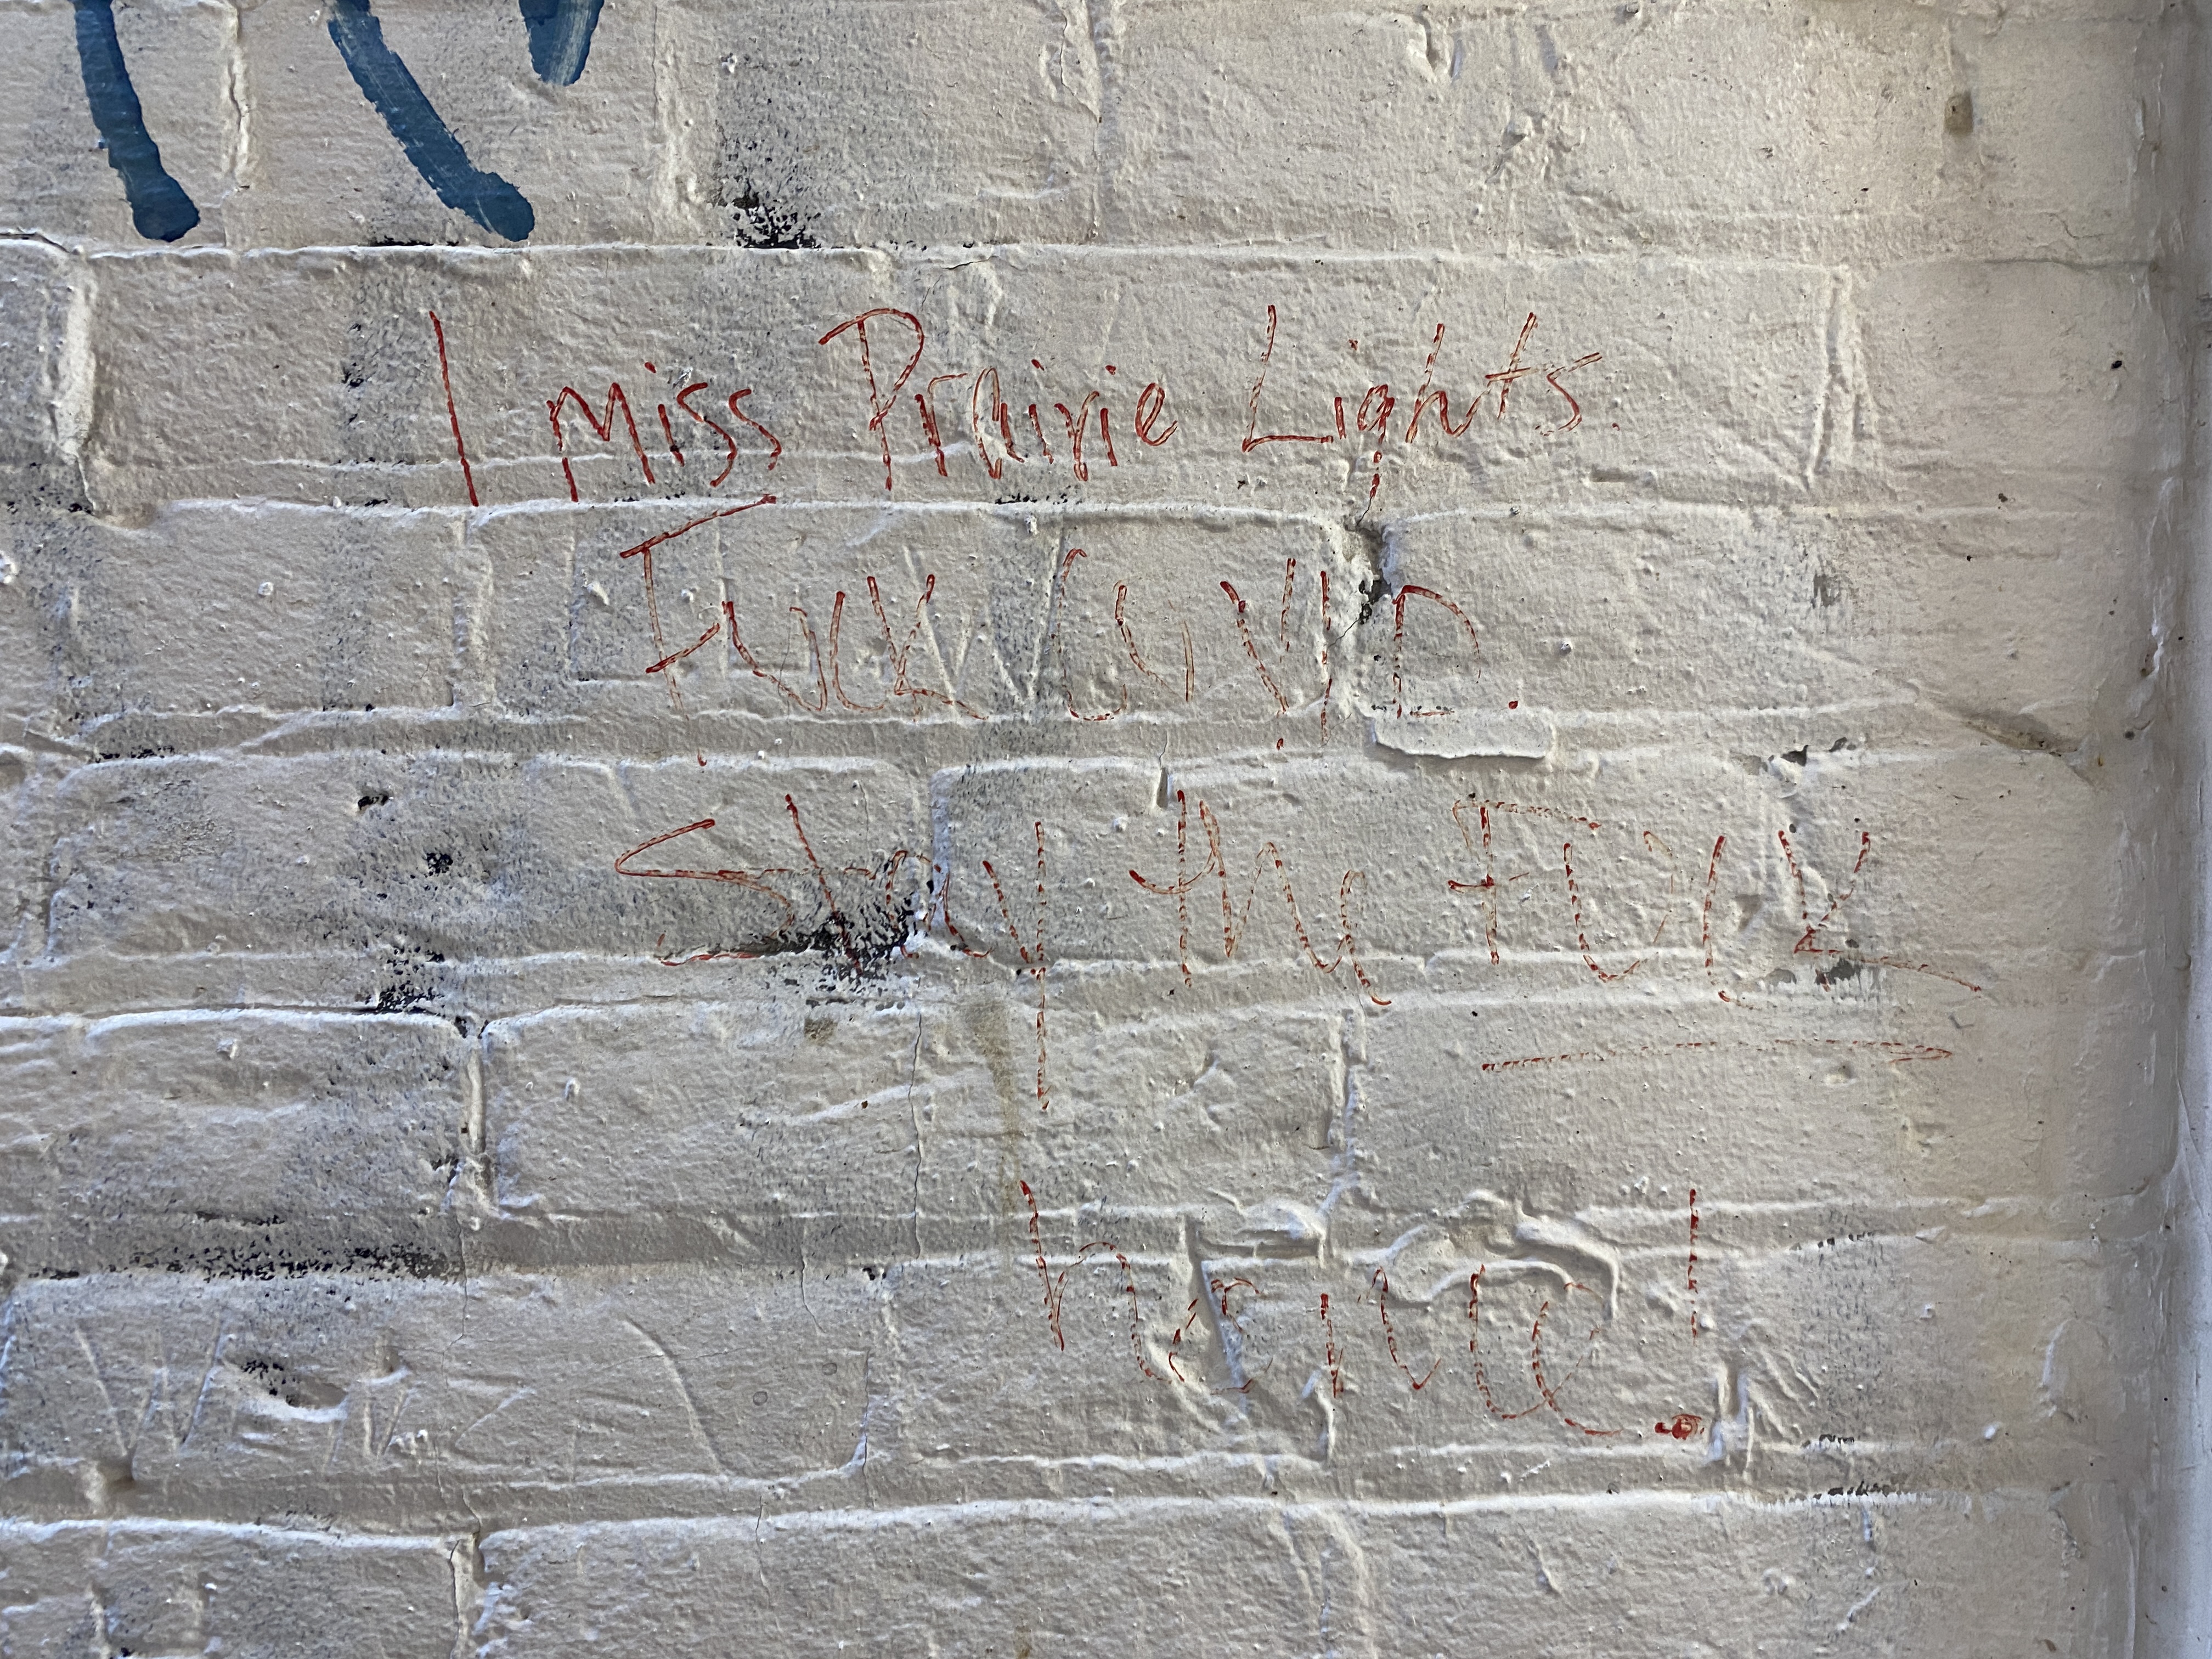 I miss Prairie Lights.
Fuck COVID.
Stay the Fuck
home!